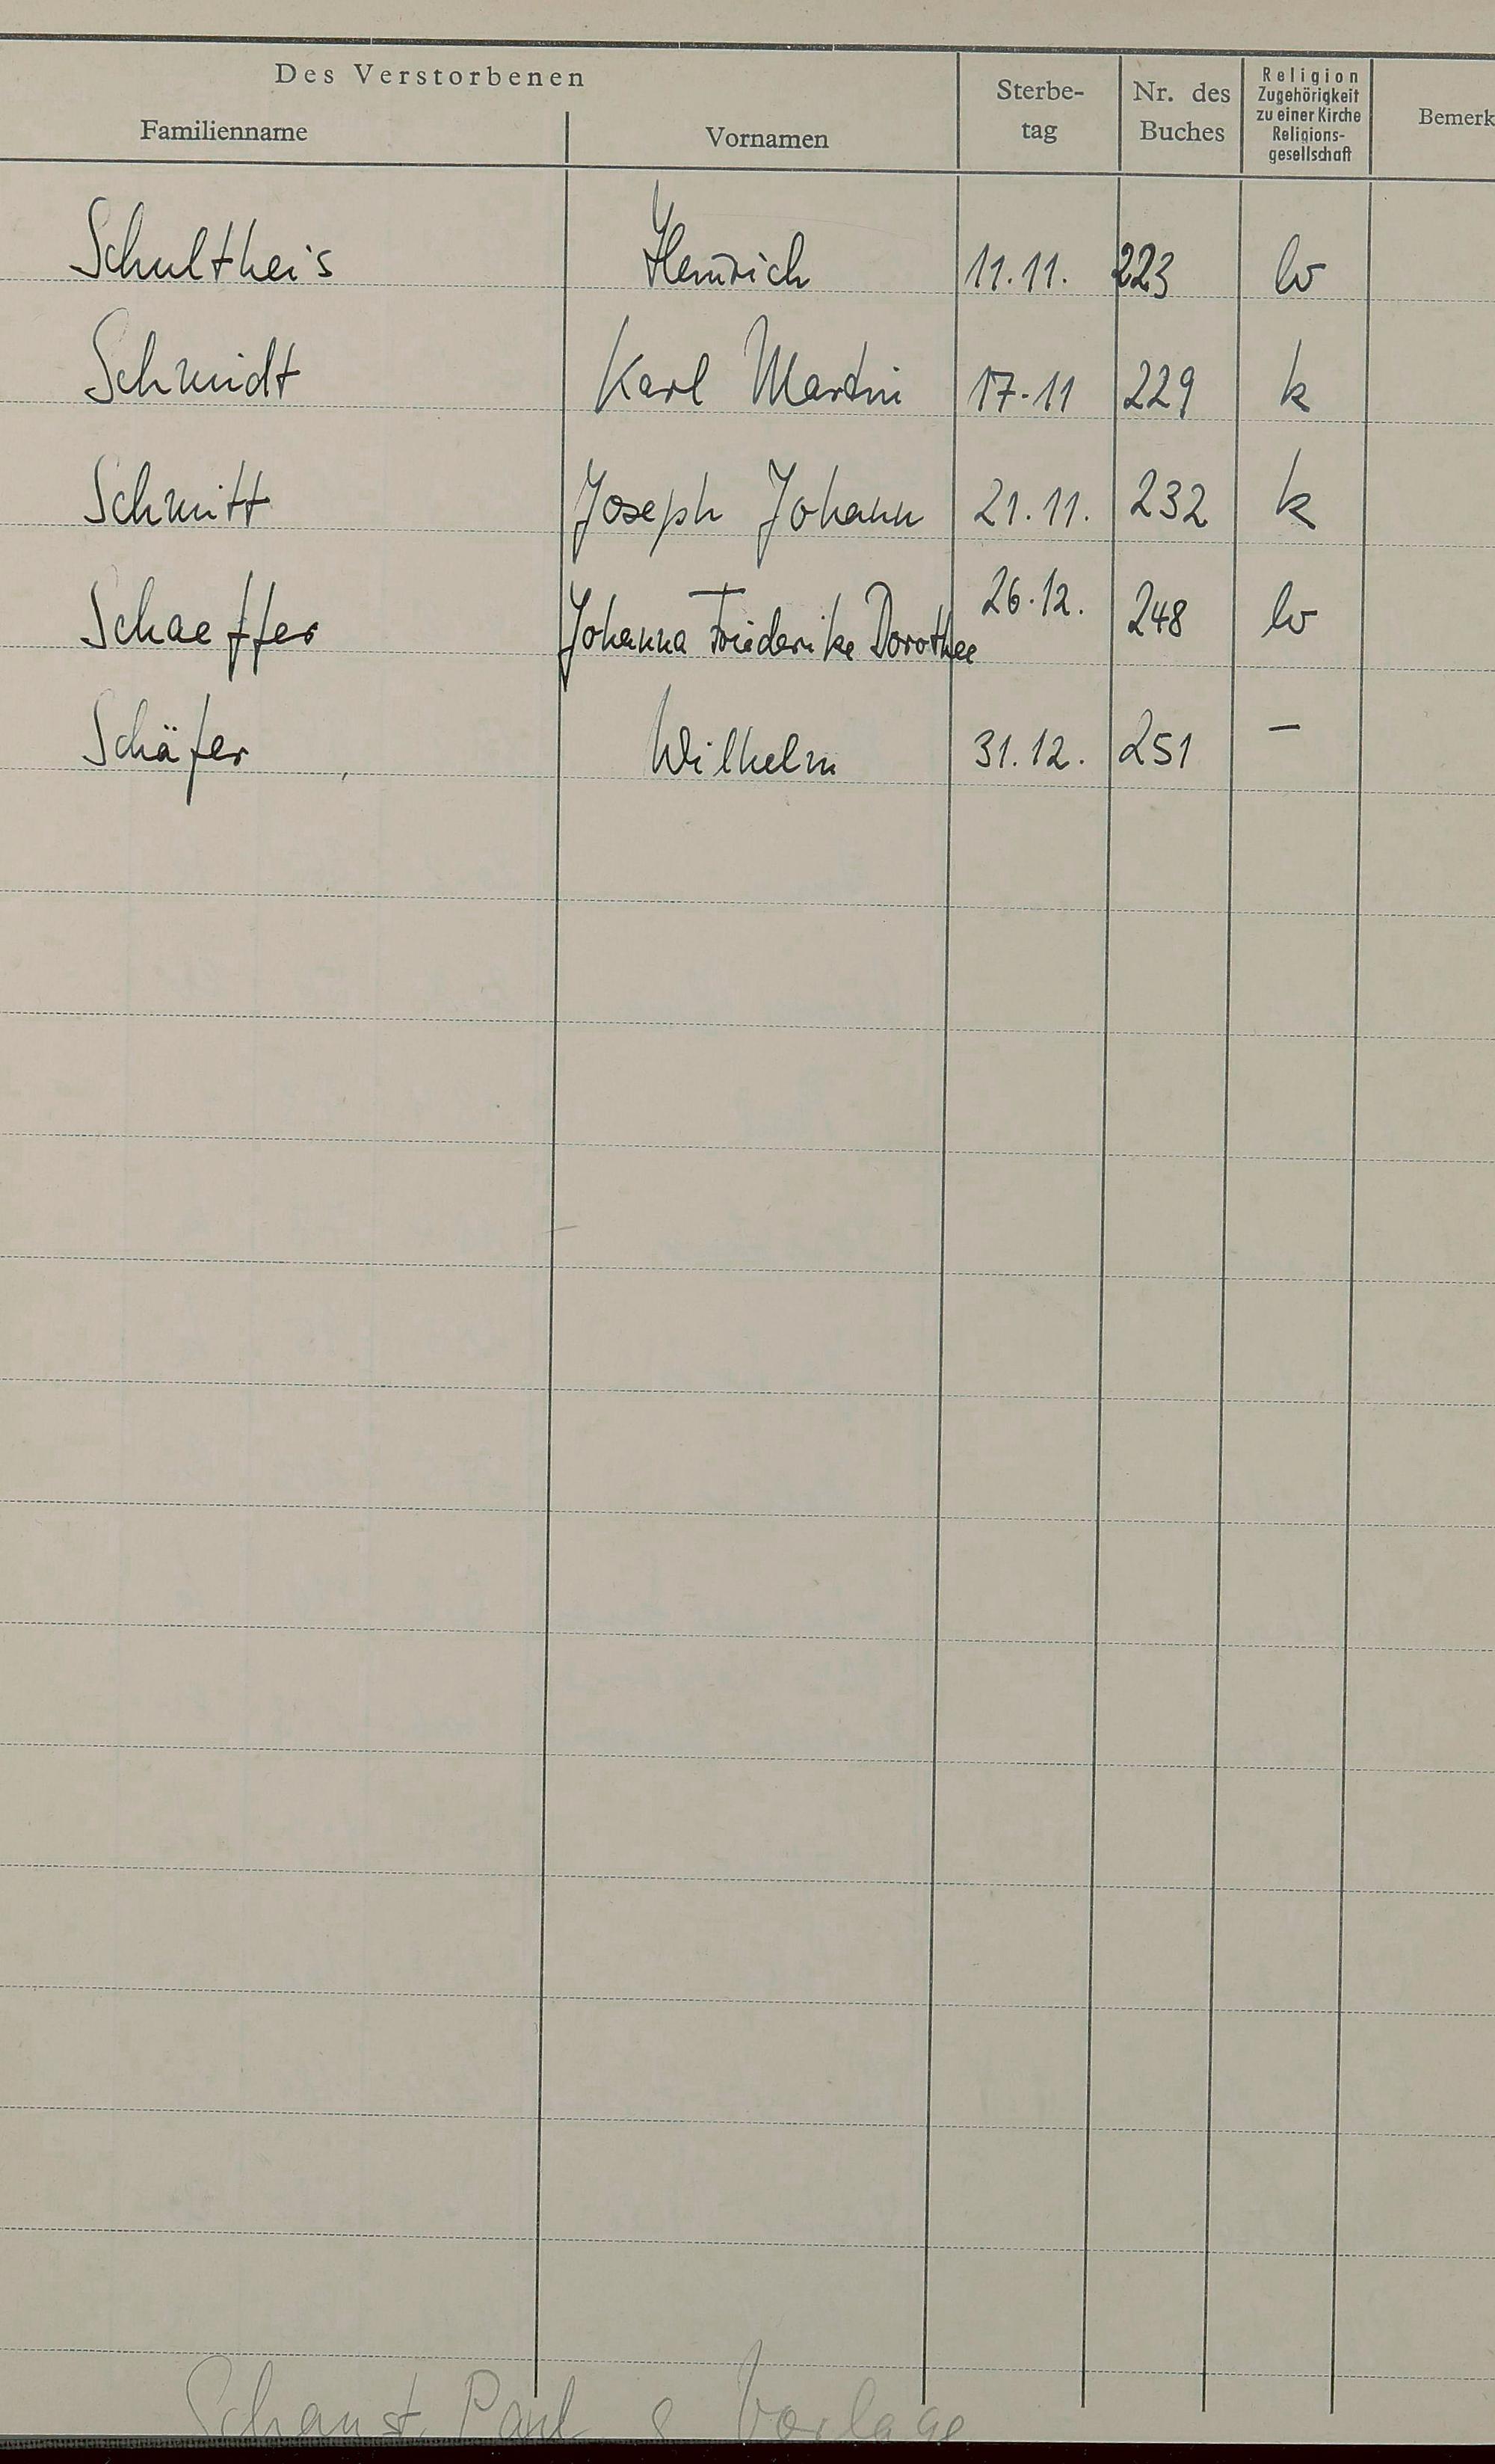 Des Verstorbenen
Familienname Vornamen
Sterbe-
tag
Nr. des
Buches
Religion
Zugehörigkeit
zu einer Kirche
Religions-
gesellschaft
Bemerk
Schultheis Heinrich 11.11. 223 lv
Schmidt Karl Martin 17.11 229 k
Schmitt Joseph Johann 21.11. 232 k
Schaeffer Johanna Friederike Dorothee 26.12. 248 lv
Schäfer Wilhelm 31.12. 251 –
Schanst Paul s Vorlage